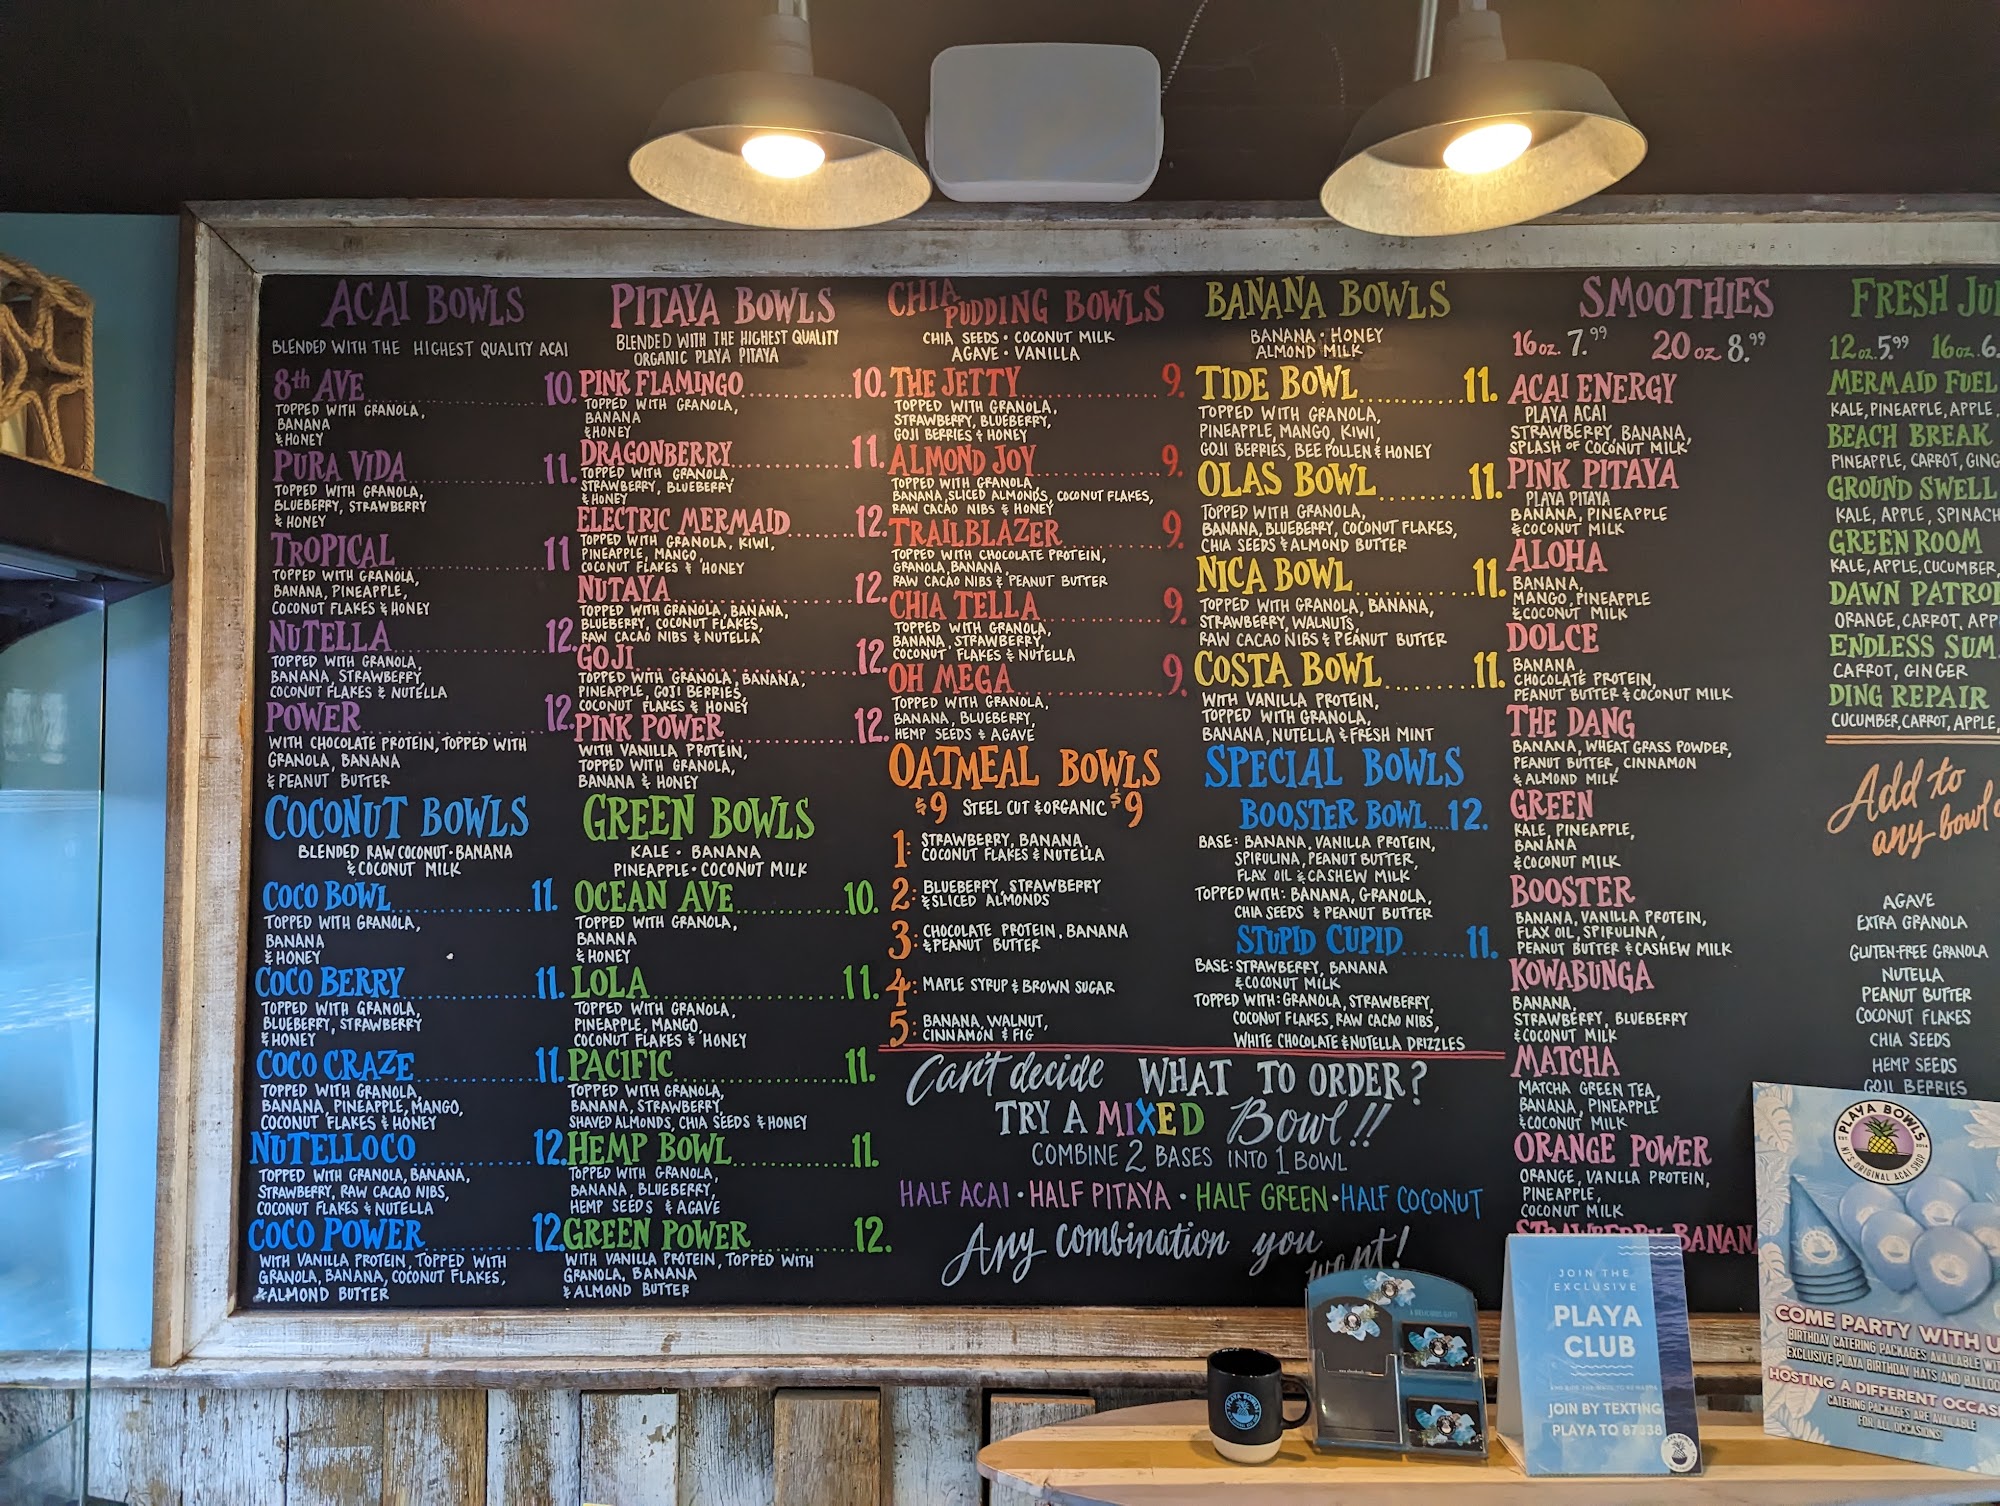 ACAI BOWLS
BLENDED WITH THE HIGHEST QUALITY ACAI
8th AVE 10.
TOPPED WITH GRANOLA,
BANANA
& HONEY
PURA VIDA 11.
TOPPED WITH GRANOLA,
BLUEBERRY, STRAWBERRY
& HONEY
TROPICAL 11
TOPPED WITH GRANOLA,
BANANA, PINEAPPLE,
COCONUT FLAKES & HONEY
NUTELLA 12.
TOPPED WITH GRANOLA,
BANANA, STRAWBERRY,
COCONUT FLAKES & NUTELLA
POWER 12.
WITH CHOCOLATE PROTEIN, TOPPED WITH
GRANOLA, BANANA
& PEANUT BUTTER
COCONUT BOWLS
BLENDED RAW COCONUT · BANANA
& COCONUT MILK
COCO BOWL 11.
TOPPED WITH GRANOLA,
BANANA
& HONEY
COCO BERRY 11.
TOPPED WITH GRANOLA,
BLUEBERRY, STRAWBERRY
& HONEY
COCO CRAZE 11.
TOPPED WITH GRANOLA,
BANANA, PINEAPPLE, MANGO,
COCONUT FLAKES & HONEY
NUTELLOCO 12.
TOPPED WITH GRANOLA, BANANA,
STRAWBERRY, RAW CACAO NIBS,
COCONUT FLAKES & NUTELLA
COCO POWER 12.
WITH VANILLA PROTEIN, TOPPED WITH
GRANOLA, BANANA, COCONUT FLAKES,
& ALMOND BUTTER
PITAYA BOWLS
BLENDED WITH THE HIGHEST QUALITY
ORGANIC PLAYA PITAYA
PINK FLAMINGO 10.
TOPPED WITH GRANOLA,
BANANA
& HONEY
DRAGONBERRY 11.
TOPPED WITH GRANOLA,
STRAWBERRY, BLUEBERRY
& HONEY
ELECTRIC MERMAID 12.
TOPPED WITH GRANOLA, KIWI,
PINEAPPLE, MANGO,
COCONUT FLAKES & HONEY
NUTAYA 12.
TOPPED WITH GRANOLA, BANANA,
BLUEBERRY, COCONUT FLAKES,
RAW CACAO NIBS & NUTELLA
GOJI 12.
TOPPED WITH GRANOLA, BANANA,
PINEAPPLE, GOJI BERRIES,
COCONUT FLAKES & HONEY
PINK POWER 12.
WITH VANILLA PROTEIN,
TOPPED WITH GRANOLA,
BANANA & HONEY
GREEN BOWLS
KALE · BANANA
PINEAPPLE · COCONUT MILK
OCEAN AVE 10.
TOPPED WITH GRANOLA,
BANANA
& HONEY
LOLA 11.
TOPPED WITH GRANOLA,
PINEAPPLE, MANGO,
COCONUT FLAKES & HONEY
PACIFIC 11.
TOPPED WITH GRANOLA,
BANANA, STRAWBERRY,
SHAVED ALMONDS, CHIA SEEDS & HONEY
HEMP BOWL 11.
TOPPED WITH GRANOLA,
BANANA, BLUEBERRY,
HEMP SEEDS & AGAVE
GREEN POWER 12.
WITH VANILLA PROTEIN, TOPPED WITH
GRANOLA, BANANA
& ALMOND BUTTER
CHIA PUDDING BOWLS
CHIA SEEDS · COCONUT MILK
AGAVE · VANILLA
THE JETTY 9.
TOPPED WITH GRANOLA,
STRAWBERRY, BLUEBERRY,
GOJI BERRIES & HONEY
ALMOND JOY 9.
TOPPED WITH GRANOLA
BANANA, SLICED ALMONDS, COCONUT FLAKES,
RAW CACAO NIBS & HONEY
TRAILBLAZER 9.
TOPPED WITH CHOCOLATE PROTEIN,
GRANOLA, BANANA,
RAW CACAO NIBS & PEANUT BUTTER
CHIA TELLA 9.
TOPPED WITH GRANOLA,
BANANA, STRAWBERRY,
COCONUT FLAKES & NUTELLA
OH MEGA 9.
TOPPED WITH GRANOLA,
BANANA, BLUEBERRY,
HEMP SEEDS & AGAVE
OATMEAL BOWLS
$9 STEEL CUT & ORGANIC $9
1: STRAWBERRY, BANANA,
COCONUT FLAKES & NUTELLA
2: BLUEBERRY, STRAWBERRY
& SLICED ALMONDS
3: CHOCOLATE PROTEIN, BANANA
& PEANUT BUTTER
4: MAPLE SYRUP & BROWN SUGAR
5: BANANA, WALNUT,
CINNAMON & FIG
BANANA BOWLS
BANANA · HONEY
ALMOND MILK
TIDE BOWL 11.
TOPPED WITH GRANOLA,
PINEAPPLE, MANGO, KIWI,
GOJI BERRIES, BEE POLLEN & HONEY
OLAS BOWL 11.
TOPPED WITH GRANOLA,
BANANA, BLUEBERRY, COCONUT FLAKES,
CHIA SEEDS & ALMOND BUTTER
NICA BOWL 11.
TOPPED WITH GRANOLA, BANANA,
STRAWBERRY, WALNUTS,
RAW CACAO NIBS & PEANUT BUTTER
COSTA BOWL 11.
WITH VANILLA PROTEIN,
TOPPED WITH GRANOLA,
BANANA, NUTELLA & FRESH MINT
SPECIAL BOWLS
BOOSTER BOWL 12.
BASE: BANANA, VANILLA PROTEIN,
SPIRULINA, PEANUT BUTTER,
FLAX OIL & CASHEW MILK
TOPPED WITH: BANANA, GRANOLA,
CHIA SEEDS & PEANUT BUTTER
STUPID CUPID 11.
BASE: STRAWBERRY, BANANA
& COCONUT MILK
TOPPED WITH: GRANOLA, STRAWBERRY,
COCONUT FLAKES, RAW CACAO NIBS,
WHITE CHOCOLATE & NUTELLA DRIZZLES
Can't decide WHAT TO ORDER?
TRY A MIXED Bowl!!
COMBINE 2 BASES INTO 1 BOWL
HALF ACAI · HALF PITAYA · HALF GREEN · HALF COCONUT
Any combination you
want!
SMOOTHIES
16 oz. 7.99 20 oz 8.99
ACAI ENERGY
PLAYA ACAI
STRAWBERRY, BANANA,
SPLASH OF COCONUT MILK
PINK PITAYA
PLAYA PITAYA
BANANA, PINEAPPLE
& COCONUT MILK
ALOHA
BANANA,
MANGO, PINEAPPLE
& COCONUT MILK
DOLCE
BANANA,
CHOCOLATE PROTEIN,
PEANUT BUTTER & COCONUT MILK
THE DANG
BANANA, WHEAT GRASS POWDER,
PEANUT BUTTER, CINNAMON
& ALMOND MILK
GREEN
KALE, PINEAPPLE,
BANANA
& COCONUT MILK
BOOSTER
BANANA, VANILLA PROTEIN,
FLAX OIL, SPIRULINA,
PEANUT BUTTER & CASHEW MILK
KOWABUNGA
BANANA,
STRAWBERRY, BLUEBERRY
& COCONUT MILK
MATCHA
MATCHA GREEN TEA,
BANANA, PINEAPPLE
& COCONUT MILK
ORANGE POWER
ORANGE, VANLLA PROTEIN,
PINEAPPLE,
COCONUT MILK
STRAWBERRY BANANA
FRESH JU
12 oz. 5.99 16 oz. 6.
MERMAID FUEL
KALE, PINEAPPLE, APPLE,
BEACH BREAK
PINEAPPLE, CARROT, GING
GROUND SWELL
KALE, APPLE, SPINACH
GREEN ROOM
KALE, APPLE, CUCUMBER,
DAWN PATROL
ORANGE, CARROT, APP
ENDLESS SUM
CARROT, GINGER
DING REPAIR
CUCUMBER, CARROT, APPLE,
Add to
any bowl
AGAVE
EXTRA GRANOLA
GLUTEN-FREE GRANOLA
NUTELLA
PEANUT BUTTER
COCONUT FLAKES
CHIA SEEDS
HEMP SEEDS
GOJI BERRIES
PLAYA BOWLS
EST. 2014
NJ'S ORIGINAL ACAI SHOP
COME PARTY WITH U
BIRTHDAY CATERING PACKAGES AVAILABLE WIT
EXCLUSIVE PLAYA BIRTHDAY HATS AND BALLOO
HOSTING A DIFFERENT OCCAS
CATERING PACKAGES ARE AVAILABLE
FOR ALL OCCASIONS!
JOIN THE
EXCLUSIVE
PLAYA
CLUB
JOIN BY TEXTING
PLAYA TO 87338
PLAYA BOWLS